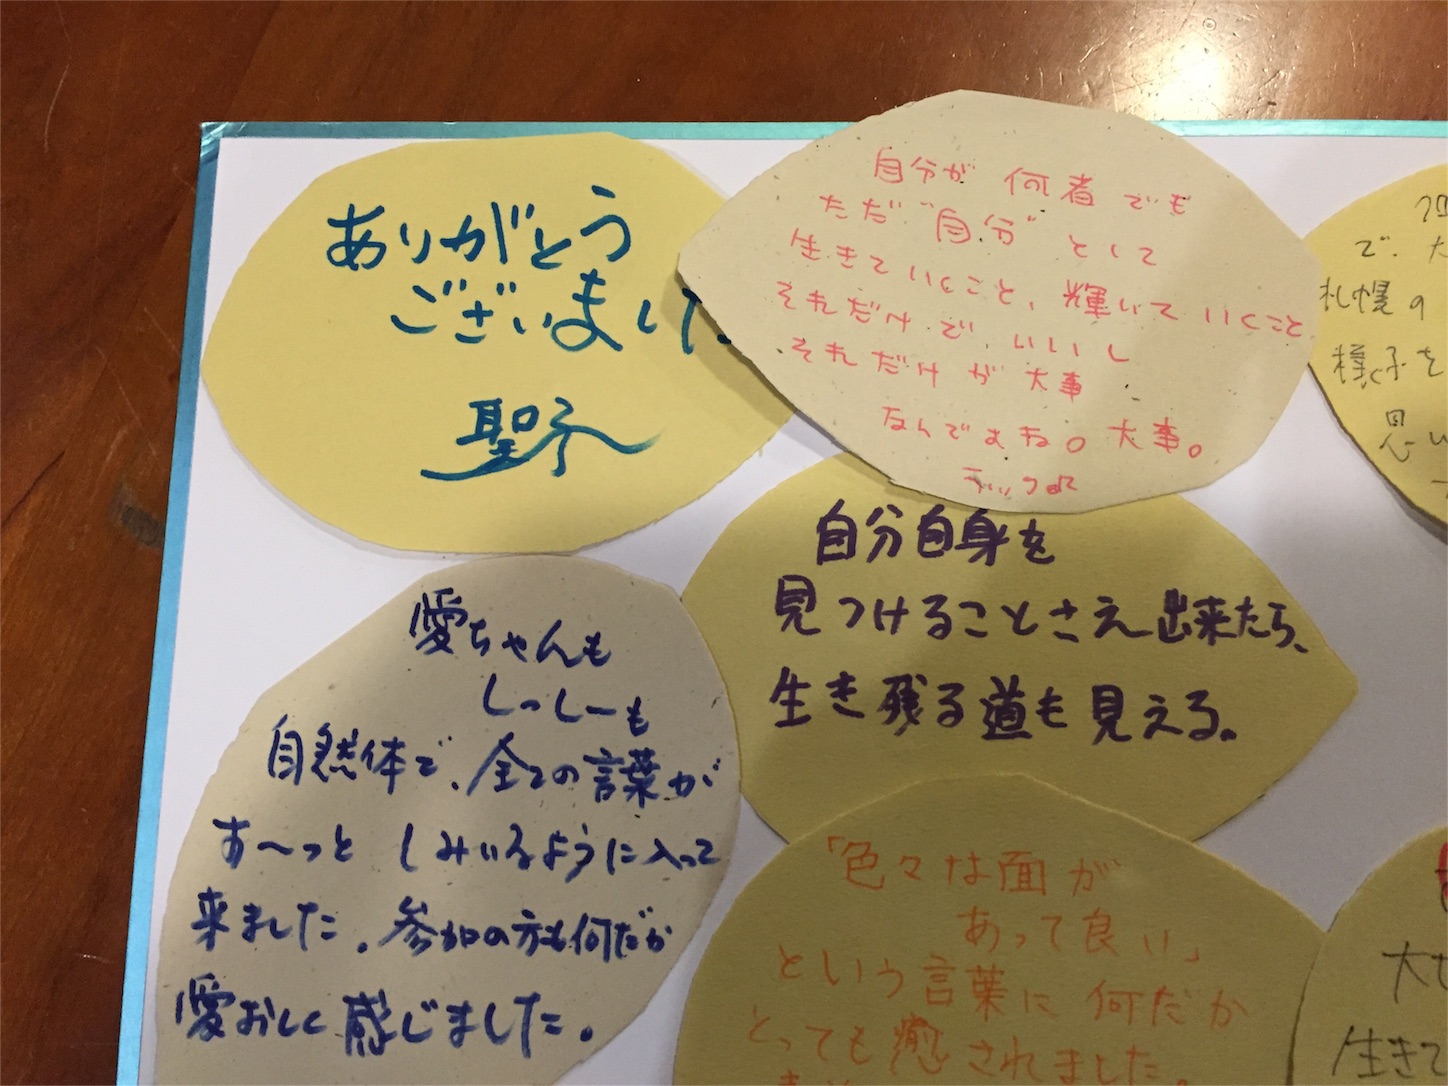 ありがとう
ございました
聖子
自分が 何者でも
ただ"自分"として
生きていくこと、輝いていくこと
それだけで、いいし
それだけが大事
なんですよね。大事。
自分自身を
見つけることさえ出来たら、
生き残る道も見える。
愛ちゃんも
しっしーも
自然体で、全ての言葉が
す〜っと しみいるように入って
来ました。参加の方も何だか
愛おしく感じました。
「色々な面が
あって良い」
という言葉に何だか
とっても癒されました。
で、た
札幌の
様子を
思い
大せ
生きて